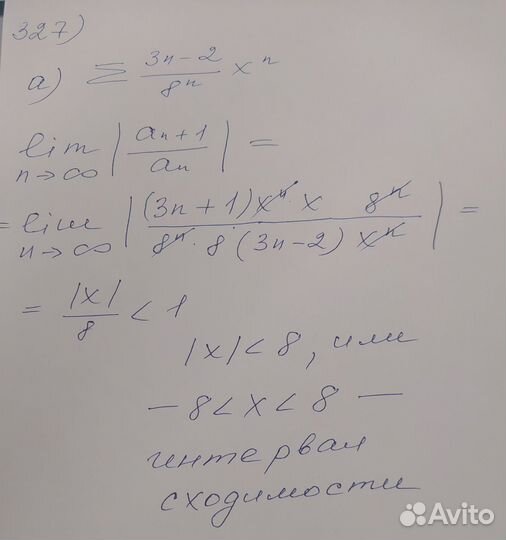 327)
а) Σ (3n-2)/8ⁿ xⁿ
lim n→∞ |aₙ+1/aₙ| =
= lim n→∞ |(3n+1)xⁿ·x 8ⁿ / 8ⁿ·8(3n-2)xⁿ| =
= |x|/8 < 1
|x|<8, или
-8<x<8 —
интервал
сходимости
Avito